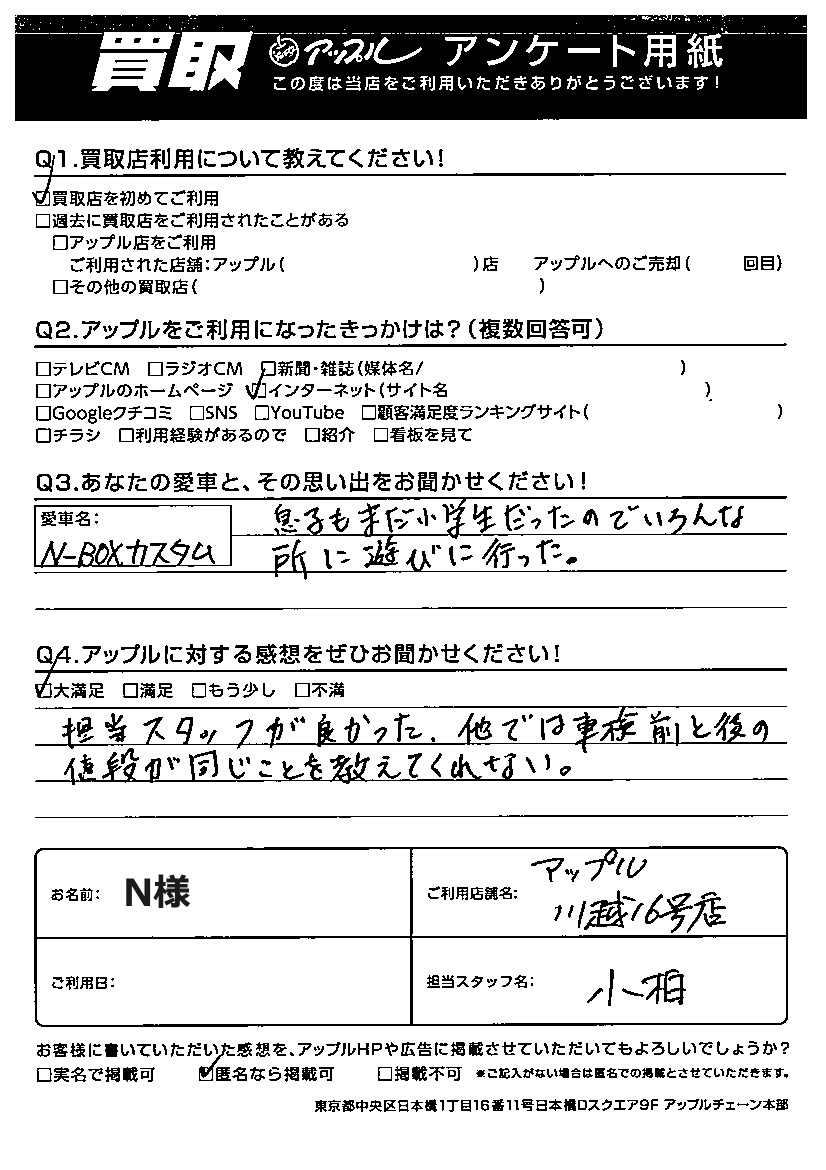 買取 アップル アンケート用紙
この度は当店をご利用いただきありがとうございます!
Q1.買取店利用について教えてください!
☑買取店を初めてご利用
□過去に買取店をご利用されたことがある
□アップル店をご利用
ご利用された店舗:アップル( )店 アップルへのご売却( 回目)
□その他の買取店( )
Q2.アップルをご利用になったきっかけは?(複数回答可)
□テレビCM □ラジオCM □新聞・雑誌(媒体名/ )
□アップルのホームページ ☑インターネット(サイト名 )
□Googleクチコミ □SNS □YouTube □顧客満足度ランキングサイト( )
□チラシ □利用経験があるので □紹介 □看板を見て
Q3.あなたの愛車と、その思い出をお聞かせください!
愛車名:
N-BOXカスタム
息子もまだ小学生だったのでいろんな
所に遊びに行った。
Q4.アップルに対する感想をぜひお聞かせください!
☑大満足 □満足 □もう少し □不満
担当スタッフが良かった、他では車検前と後の
値段が同じことを教えてくれない。
お名前: N様
ご利用店舗名: アップル
川越16号店
ご利用日:
担当スタッフ名: 小相
お客様に書いていただいた感想を、アップルHPや広告に掲載させていただいてもよろしいでしょうか?
□実名で掲載可 ☑匿名なら掲載可 □掲載不可 *ご記入がない場合は匿名での掲載とさせていただきます。
東京都中央区日本橋1丁目16番11号日本橋Dスクエア9F アップルチェーン本部